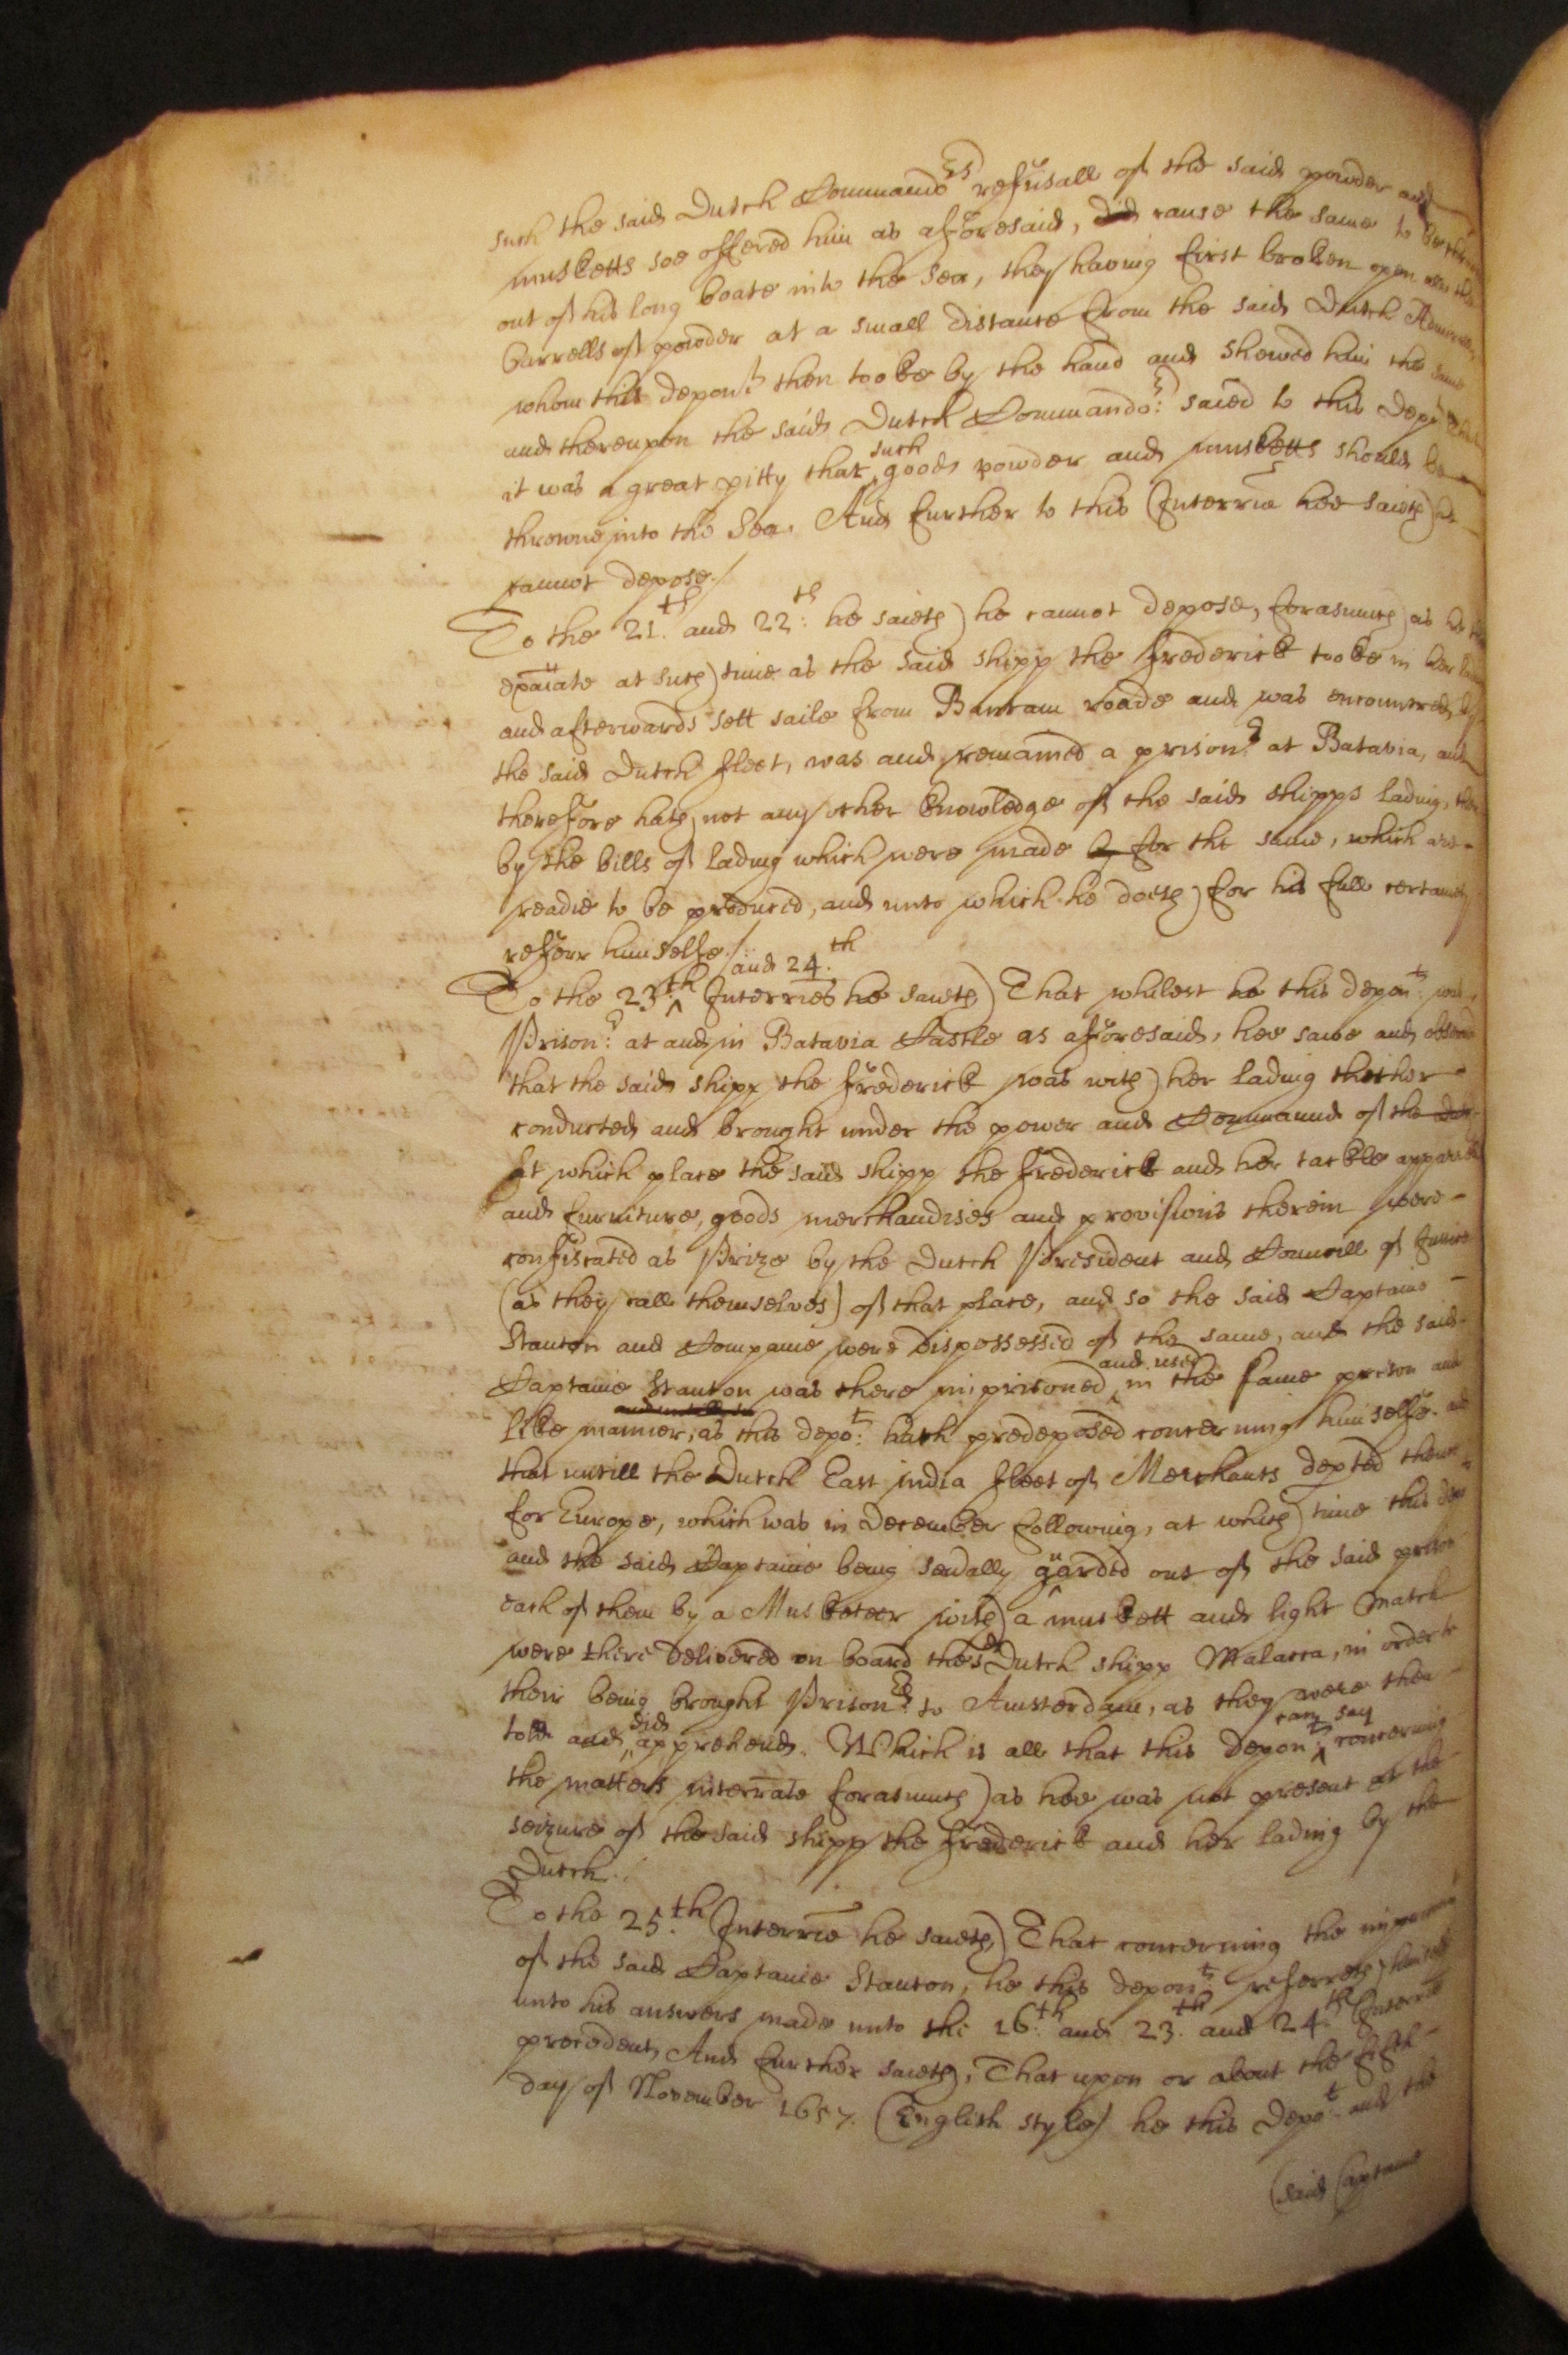 such the said Dutch Commando:rs refusall of the said powder and
musketts soe offered him as afforesaid, did cause the same to be
out of his long boate into the sea, they having first broken open
barrells of powder at a small distance from the said Dutch Admirall,
whom this depon:t then tooke by the hand and shewed him the same
and thereupon the said Dutch Commando:r saied to this dep:t
it was a great pitty that such good powder and musketts should be
throwne into the Sea. And further to this Interrie hee saieth he
cannot depose./
To the 21:th and 22:th he saieth he cannot depose, forasmuch as he
at such time as the said shipp the Frederick tooke in her
and afterwards sett saile from Bantam roade and was encountred by
the said Dutch fleet, was and remained a prison:r at Batavia, and
therefore hath not any other knowledge of the said shipps lading, then
by the bills of lading which were made for the same, which are
readie to be produced, and unto which he doeth for his full certainty
referr himselfe./
To the 23:th and 24:th Interries he saieth That whilest he this depon:t was
Prison:r at and in Batavia Castle as afforesaid, hee sawe and observed
that the said shipp the Frederick was with her lading thither
conducted and brought under the power and Command of the
At which place the said shipp the Frederick and her tackle apparell
and furniture, goods merchandises and provisions therein were
confiscated as Prize by the Dutch President and Councill of
(as they call themselves) of that place, and so the said Captaine
Stanton and Companie were dispossessed of the same, and the said
Captaine Stanton was there imprisoned and used in the same prison and
like manner, as this depo:t hath predeposed concerning himselfe. and
that untill the Dutch East india fleet of Merchants depted thence
for Europe, which was in December following, at which time this
and the said Captaine being sevally guarded out of the said prison
each of them by a Musketeer with a muskett and light match
were there delivered on board the sd Dutch shipp Malacca, in order to
their being brought Prison:rs to Amsterdam, as they were then
told and did apprehend. Which is all that this depon:t can say concerning
the matters interrate forasmuch as hee was not present at the
seizure of the said shipp the Frederick and her lading by the
Dutch./
To the 25:th Interrie he saieth, That concerning the
of the said Captaine Stanton, he this depon:t referreth himselfe
unto his answers made unto the 16:th and 23:th and 24:th Interrie
precedent, And further saieth, That upon or about the fifth
day of November 1657. (English style) he this Depo:t and the
(said Captaine